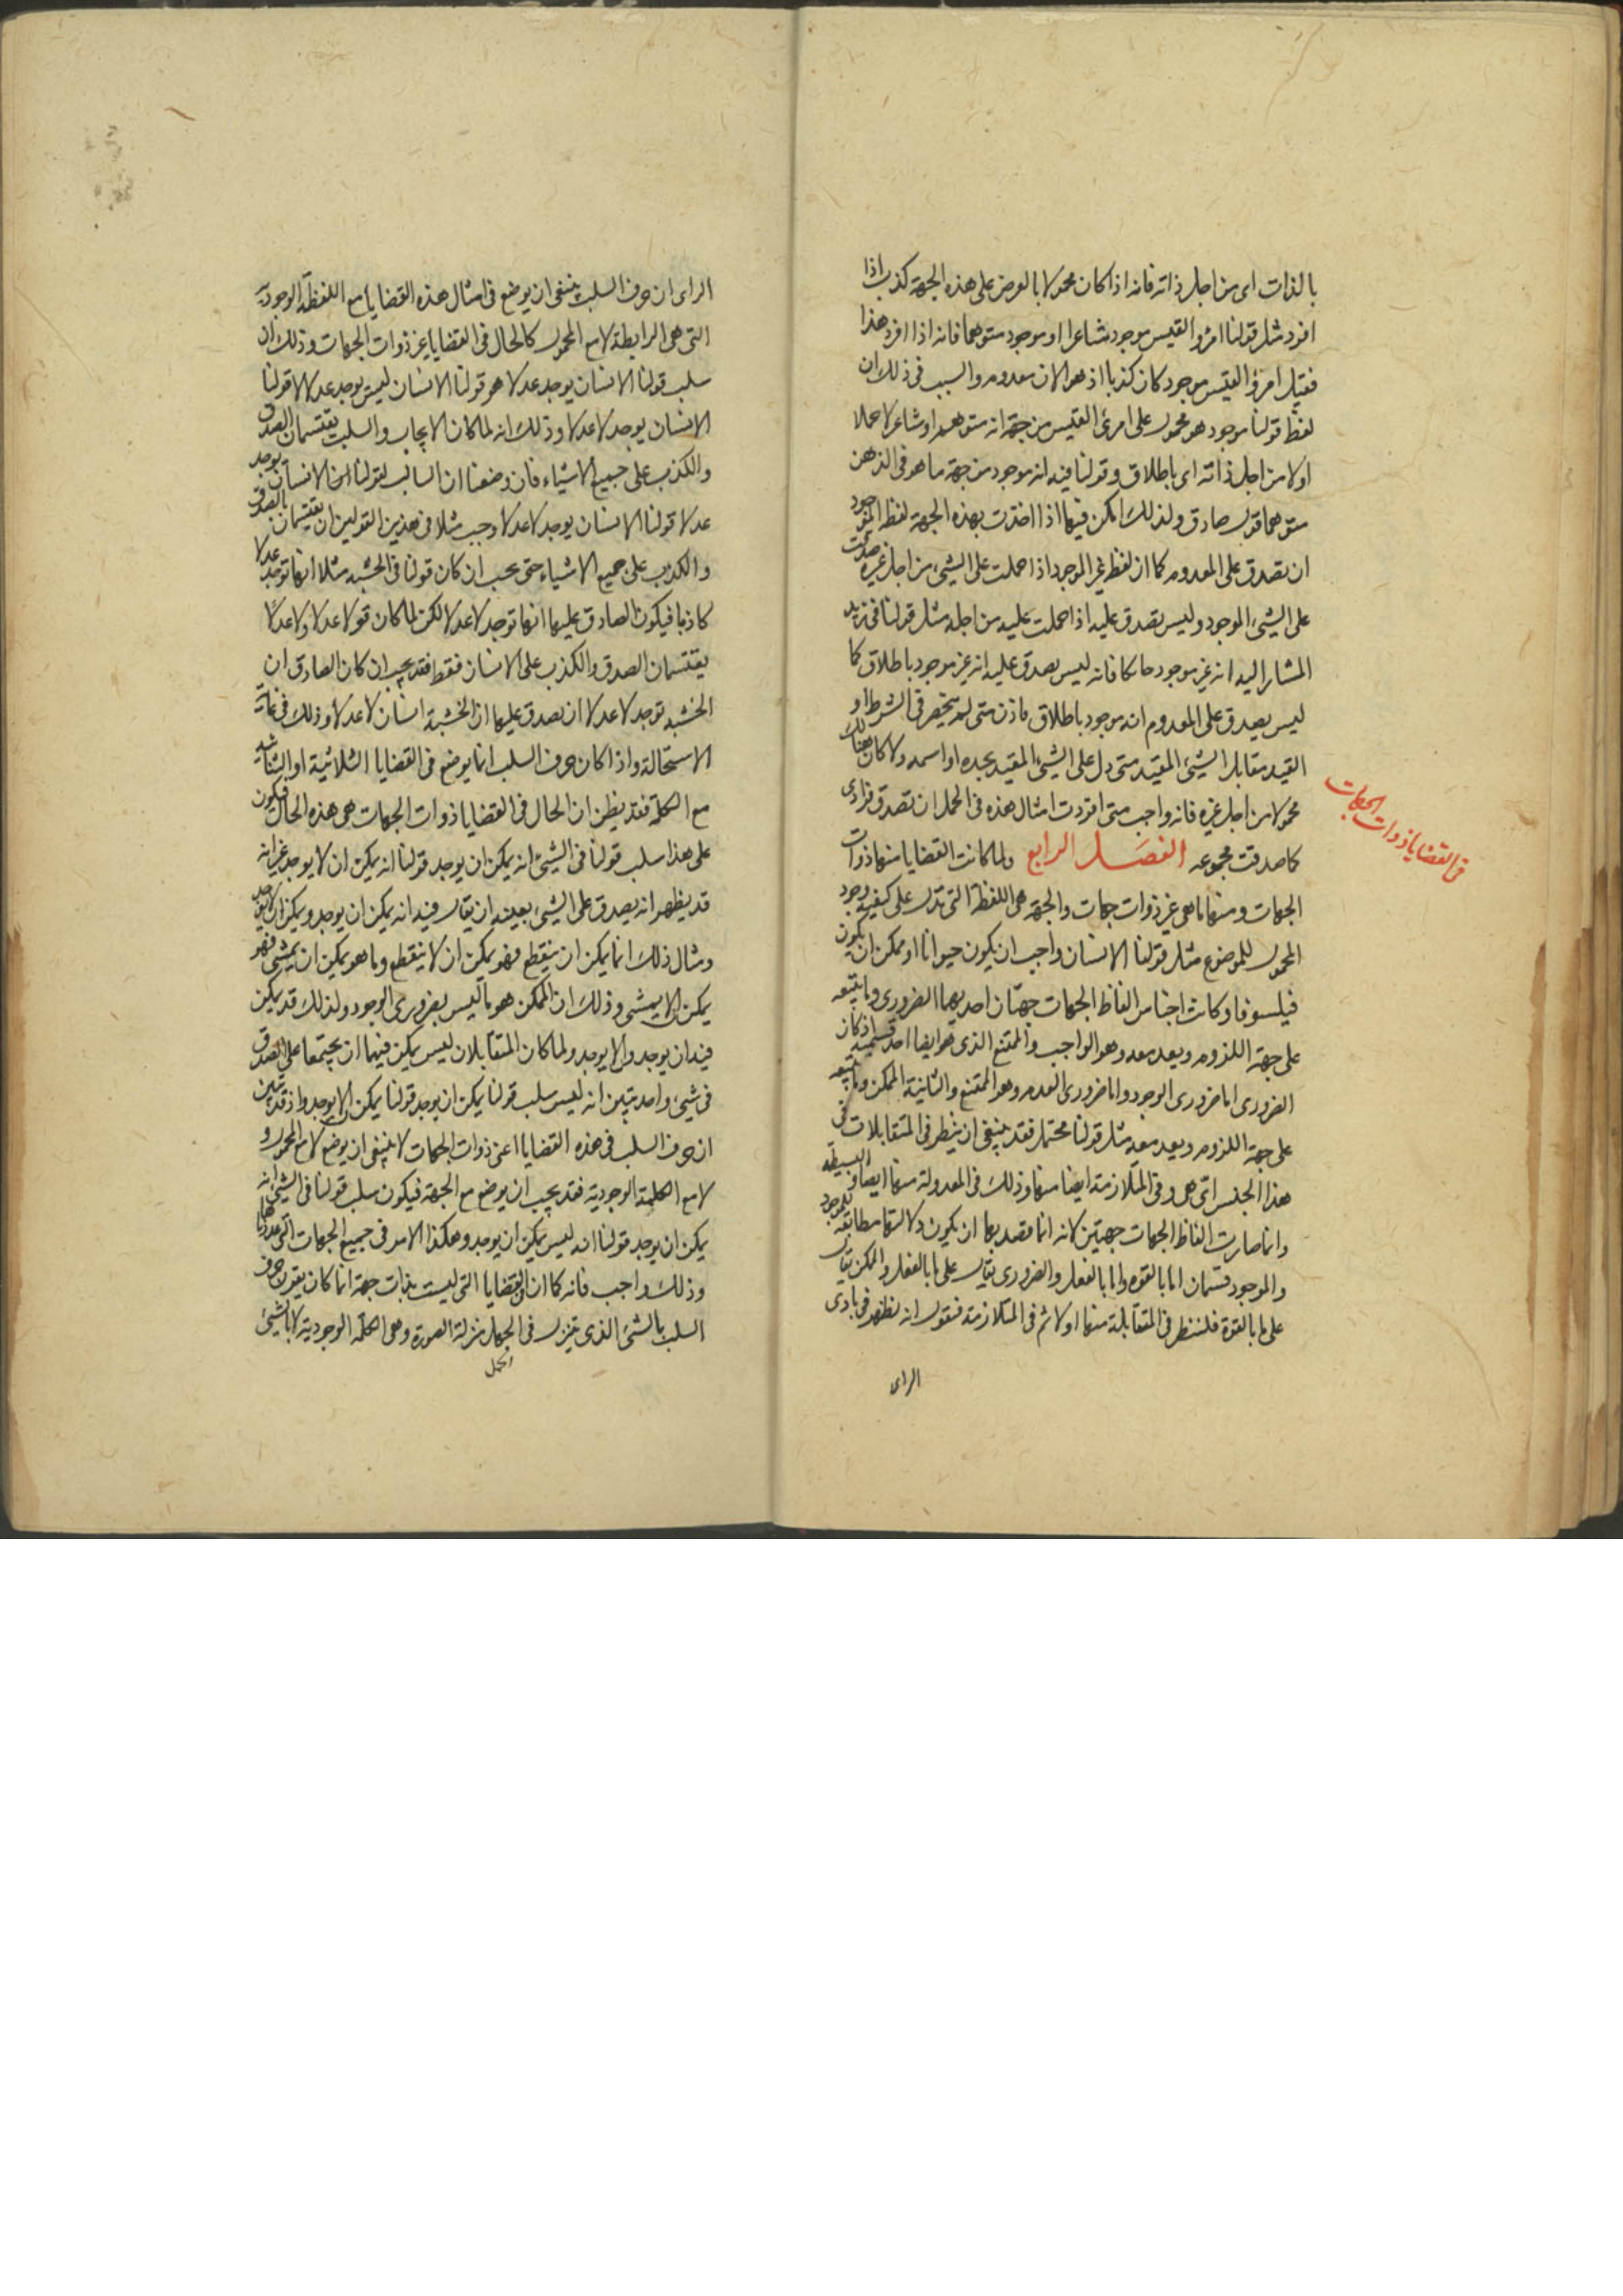 بالذات اى من اجل ذاته فانه اذا كان محمولا بالعرض على هذه الجهة كذب اذا
افرد مثل قولنا امرؤ القيس موجود شاعرا او موجود متوهما فانه اذا افرد هذا
فقيل امرؤ القيس موجود كان كذبا اذ هو الان معدوم والسبب فى ذلك ان
لفظ قولنا موجود هو محمول على امرئ القيس من جهة انه متوهم او شاعر لا حملا
اولا من اجل ذاته اى باطلاق وقولنا فيه انه موجود من جهة ما هو فى الذهن
متوهما قول صادق ولذلك امكن فيها اذا اخذت بهذه الجهة لفظ الموجود
ان تصدق على المعدوم كما ان لفظ غير الموجود اذا حملت على الشىء من اجل غيره صدقت
على الشىء الموجود وليس تصدق عليه اذا حملت عليه من اجله مثل قولنا فى زيد
المشار اليه انه غير موجود حائكا فانه ليس يصدق عليه انه غير موجود باطلاق كما
ليس يصدق على المعدوم انه موجود باطلاق فاذن متى لم ينحصر فى الشرط او
القيد مقابل الشىء المقيد متى دل على الشىء المقيد بحده او اسمه ولا كان هنالك
محمولا من اجل غيره فانه واجب متى افردت امثال هذه فى الحمل ان تصدق فرادى
كما صدقت مجموعه الفصل الرابع ولما كانت القضايا منها ذوات
فى القضايا ذوات الجهات
الجهات ومنها ما هى غير ذوات جهات والجهة هى اللفظة التى تدل على كيفية وجود
المحمول للموضوع مثل قولنا الانسان واجب ان يكون حيوانا او ممكن ان يكون
فيلسوفا وكانت اجناس الفاظ الجهات جهتان احديهما الضرورى وما يتبعه
على جهة اللزوم ويعد معه وهو الواجب والممتنع الذى هو ايضا احد قسميه اذ كان
الضرورى اما ضرورى الوجود واما ضرورى العدم وهو الممتنع والثانية الممكن وما يتبعه
على جهة اللزوم ويعد معه مثل قولنا محتمل فقد ينبغى ان ينظر فى المتقابلات فى
هذا الجنس اى هى وفى المتلازمة ايضا منها وذلك فى المعدولة منها ايضا والبسيطة
وانما صارت الفاظ الجهات جهتين لانه انما قصد بها ان يكون دلالتها مطابقة للموجود
والموجود قسمان اما بالقوة واما بالفعل والضرورى يقال على ما بالفعل والممكن يقال
على ما بالقوة فلننظر فى المتقابلة منها اولا ثم فى المتلازمة فنقول انه يظهر فى بادى
الراى
الراى ان حرف السلب ينبغى ان يوضع فى امثال هذه القضايا مع اللفظة الوجودية
التى هى الرابطة لا مع المحمول كالحال فى القضايا غير ذوات الجهات وذلك ان
سلب قولنا الانسان يوجد عدلا هو قولنا الانسان ليس يوجد عدلا لا قولنا
الانسان يوجد لا عدلا وذلك انه لما كان الايجاب والسلب يقتسمان الصدق
والكذب على جميع الاشياء فان وضعنا ان السالب لقولنا ان الانسان يوجد
عدلا قولنا الانسان يوجد لا عدلا وجب مثلا فى هذين القولين ان يقتسمان الصدق
والكذب على جميع الاشياء حتى يجب ان كان قولنا فى الخشبة مثلا انها توجد عدلا
كاذبا فيكون الصادق عليها انها توجد لا عدلا لكن لما كان قولا عدلا ولا عدلا
يقتسمان الصدق والكذب على الانسان فقط فقد يجب ان كان الصادق ان
الخشبة توجد لا عدلا ان يصدق عليها ان الخشبة انسان لا عدلا وذلك فى غاية
الاستحالة واذا كان حرف السلب انما يوضع فى القضايا الثلاثية او الثنائية
مع الكلمة فقد يظن ان الحال فى القضايا ذوات الجهات هى هذه الحال فيكون
على هذا سلب قولنا فى الشىء انه يمكن ان يوجد قولنا انه يمكن ان لا يوجد غير انه
قد يظهر انه يصدق على الشىء بعينه ان يقال فيه انه يمكن ان يوجد ويمكن ان لا يوجد
ومثال ذلك ان ما يمكن ان ينقطع فهو يمكن ان لا ينقطع وما هو يمكن ان يمشى فهو
يمكن الا يمشى وذلك ان الممكن هو ما ليس بضرورى الوجود ولذلك قد يمكن
فيه ان يوجد والا يوجد ولما كان المتقابلان ليس يمكن فيهما ان يجتمعا على الصدق
فى شىء واحد تبين انه ليس سلب قولنا يمكن ان يوجد قولنا يمكن الا يوجد واذ قد تبين
ان حرف السلب فى هذه القضايا اعنى ذوات الجهات لا ينبغى ان يوضع لا مع المحمول و
لا مع الكلمة الوجودية فقد يجب ان يوضع مع الجهة فيكون سلب قولنا فى الشىء انه
يمكن ان يوجد قولنا انه ليس يمكن ان يوجد وهكذا الامر فى جميع الجهات التى عددناها
وذلك واجب فانه كما ان القضايا التى ليست بذات جهة انما كان يقرن حرف
السلب بالشئ الذى ينزل فى الحمل منزلة الصورة وهى الكلمة الوجودية لا بالشئ